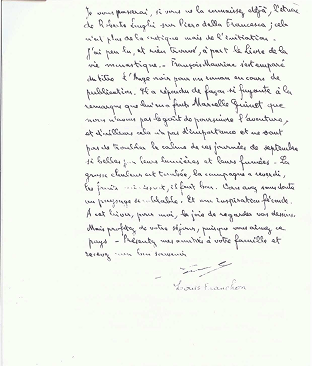 Je vous passerai, si vous ne la connaissez déjà, l'étude
de Roberto Longhi sur Piero della Francesca ; cela
n'est plus de la critique mais de l'initiation.
J'ai peu lu, et rien trouvé, à part le Livre de la
vie monastique. François Mauriac s'est emparé
du titre l'Ange noir pour un roman en cours de
publication. Il a répondu de façon si fuyante à la
remarque que lui in a fait Marcelle que
nous n'avons pas le goût de poursuivre l'aventure,
et d'ailleurs cela n'a pas d'importance et ne doit
pas troubler le calme de ces journées de septembre
si belles par leurs lumières et leurs fumées. La
grosse chaleur est tombée, la campagne a reverdi,
les il fait bon. Vous avez sans doute
un paysage semblable. Et une inspiration féconde.
A cet hiver, pour moi, la joie de regarder vos dessins.
Mais profitez de votre séjour, puisque vous aimez ce
pays. Présentez mes amitiés à votre famille et
recevez mon bon souvenir
Louis